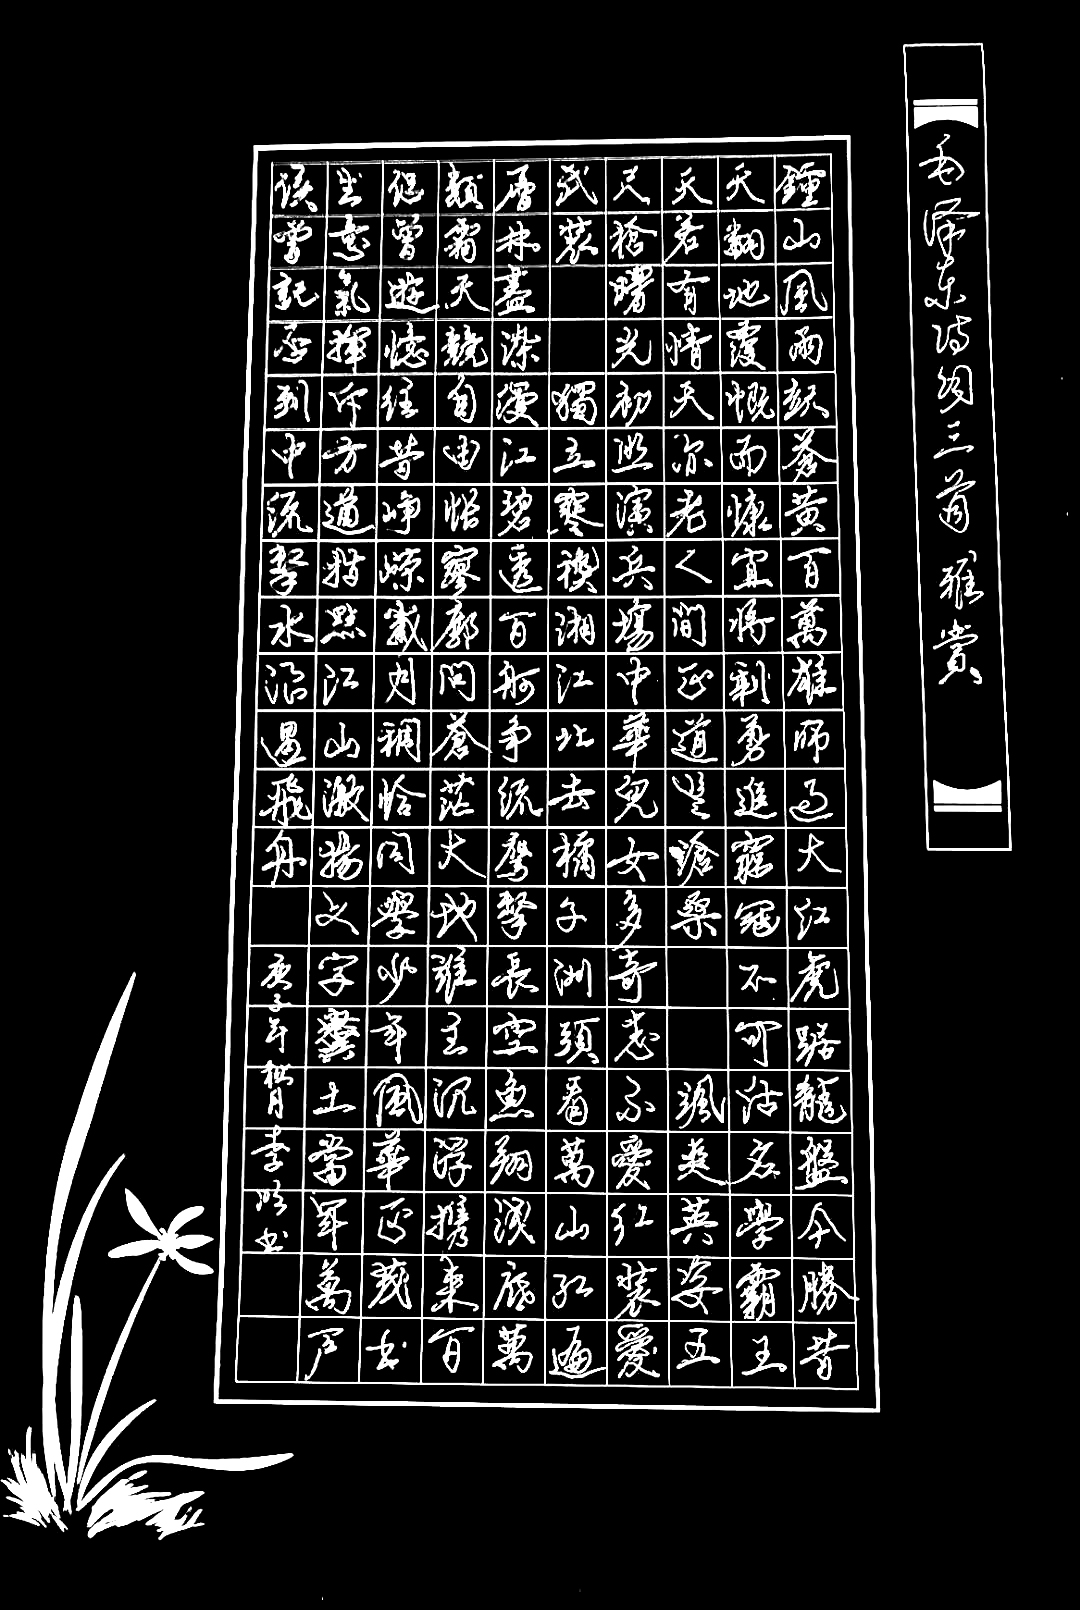 毛泽东诗词三首雅赏
鐘山風雨起蒼黄百萬雄师过大江虎踞龍盤今勝昔
天翻地覆慨而慷宜将剩勇追窮寇不可沽名學霸王
天若有情天亦老人間正道是滄桑 颯爽英姿五
尺槍曙光初照演兵場中華兒女多奇志不愛红装愛
武装 獨立寒秋湘江北去橘子洲頭看萬山红遍
層林盡染漫江碧透百舸争流鹰擊長空魚翔淺底萬
類霜天競自由悵寥廓問蒼茫大地誰主沉浮携来百
侣曾遊憶往昔崢嶸歲月稠恰同學少年風華正茂书
生意氣揮斥方遒指點江山激揚文字糞土當年萬户
侯曾記否到中流擊水浪遏飛舟 庚子年 月李 书